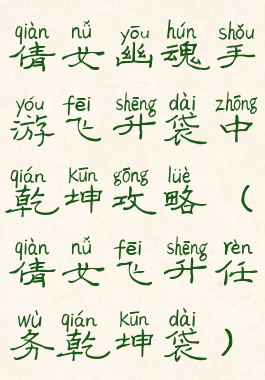 qiàn nǚ yōu hún shǒu
倩女幽魂手
yóu fēi shēng dài zhōng
游飞升袋中
qián kūn gōng lüè
乾坤攻略（
qiàn nǚ fēi shēng rèn
倩女飞升任
wù qián kūn dài
务乾坤袋）